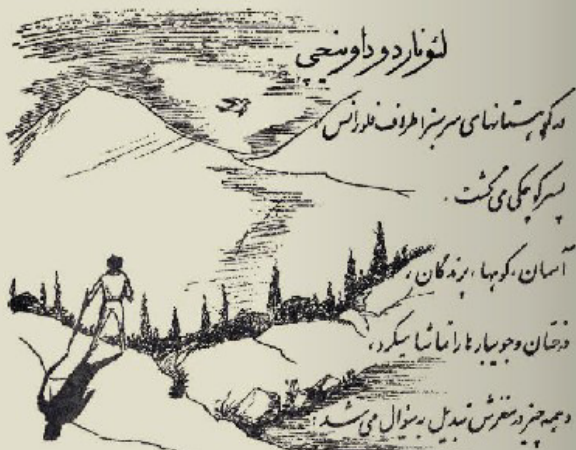 لئوناردو داوینچی
در کوهستانهای سرسبز اطراف فلورانس،
پسر کوچکی می گشت.
آسمان، کوهها، پرندگان،
درختان و جویبارها را تماشا میکرد،
و همه چیز در مغزش تبدیل به سئوال می شد: